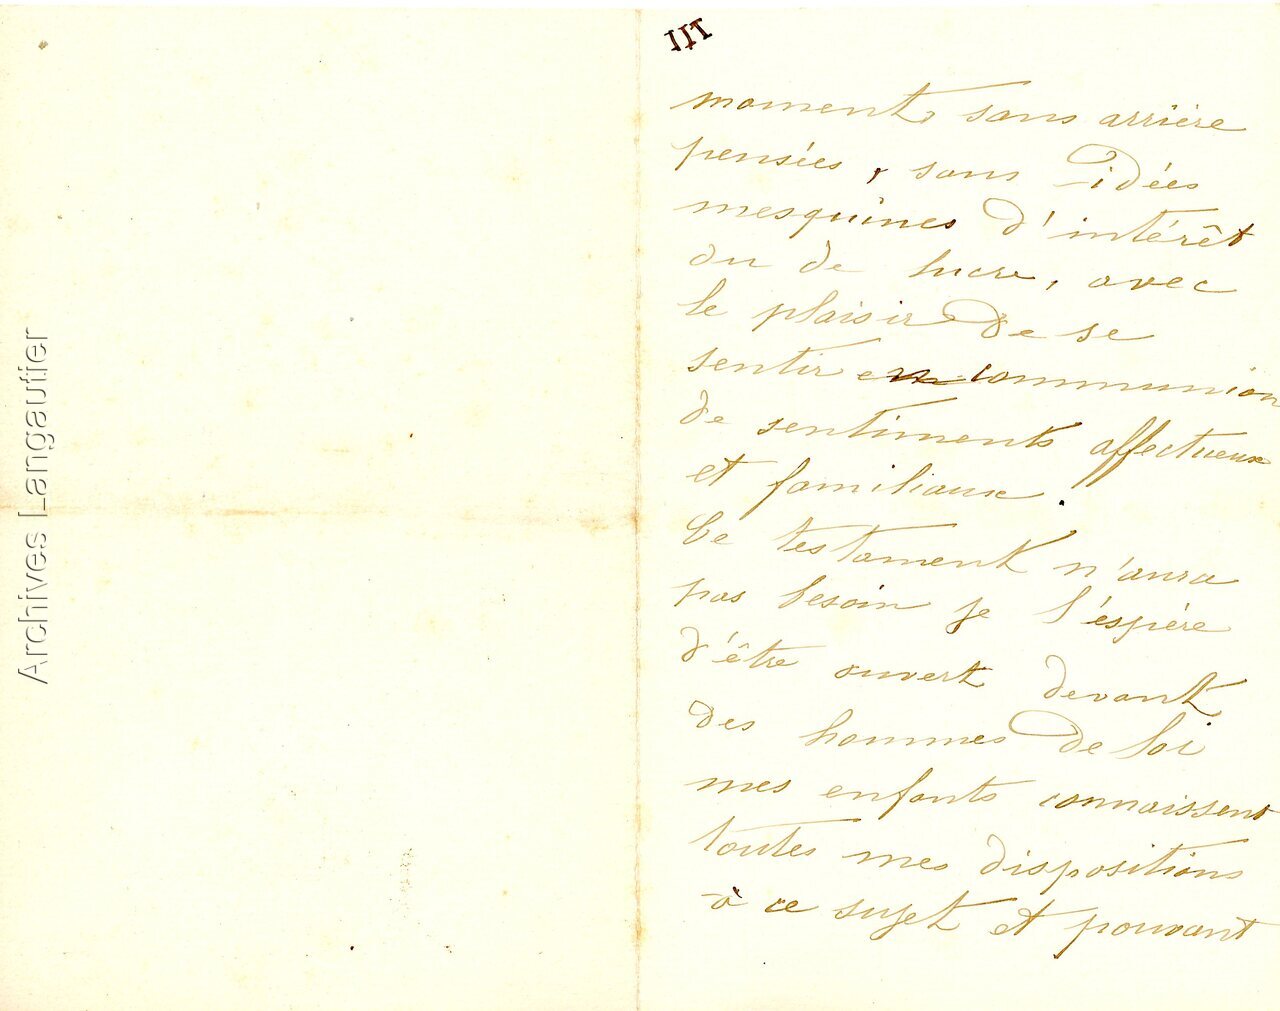 Archives Langautier
III
moment, sans arrière
pensées, sans idées
mesquines d'intérêt
ou de lucre, avec
le plaisir de se
sentir en communion
de sentiments affectueux
et familiaux.
Ce testament n'aura
pas besoin je l'espère
d'être ouvert devant
des hommes de loi
mes enfants connaissent
toutes mes dispositions
à ce sujet et pouvant